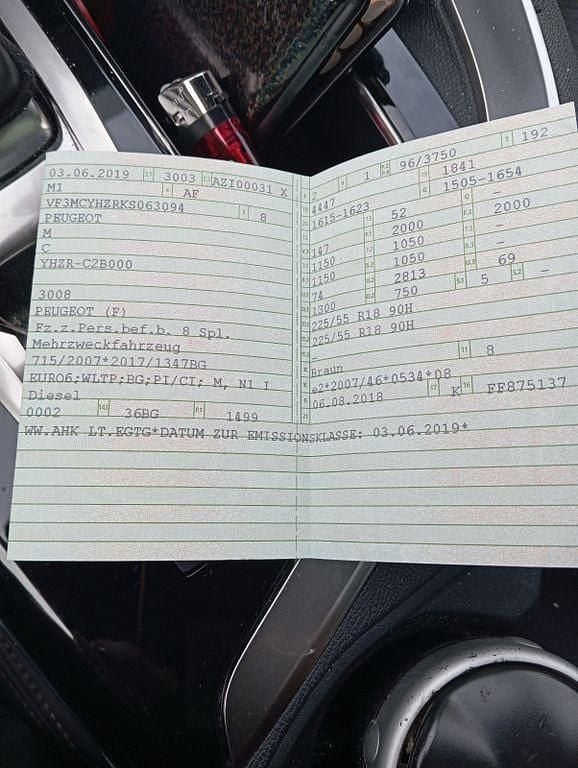 03.06.2019 3003 AZI00031 X
M1 AF
VF3MCYHZRKS063094 8
PEUGEOT
M
C
YHZR-C2B000
3008
PEUGEOT (F)
Fz.z.Pers.bef.b. 8 Spl.
Mehrzweckfahrzeug
715/2007*2017/1347BG
EURO6;WLTP;BG;PI/CI; M, N1 I
Diesel
0002 14.1 36BG P.1 1499
2 1 96/3750 T 192
4447 1841
1615-1623 1505-1654
52 -
147 2000 2000
1150 1050 -
1150 1050 -
74 2813 69
1300 750 5 -
225/55 R18 90H
225/55 R18 90H
-
Braun 11 8
e2*2007/46*0534*08
06.08.2018 17 K 16 FF875137
WW.AHK LT.EGTG*DATUM ZUR EMISSIONSKLASSE: 03.06.2019*